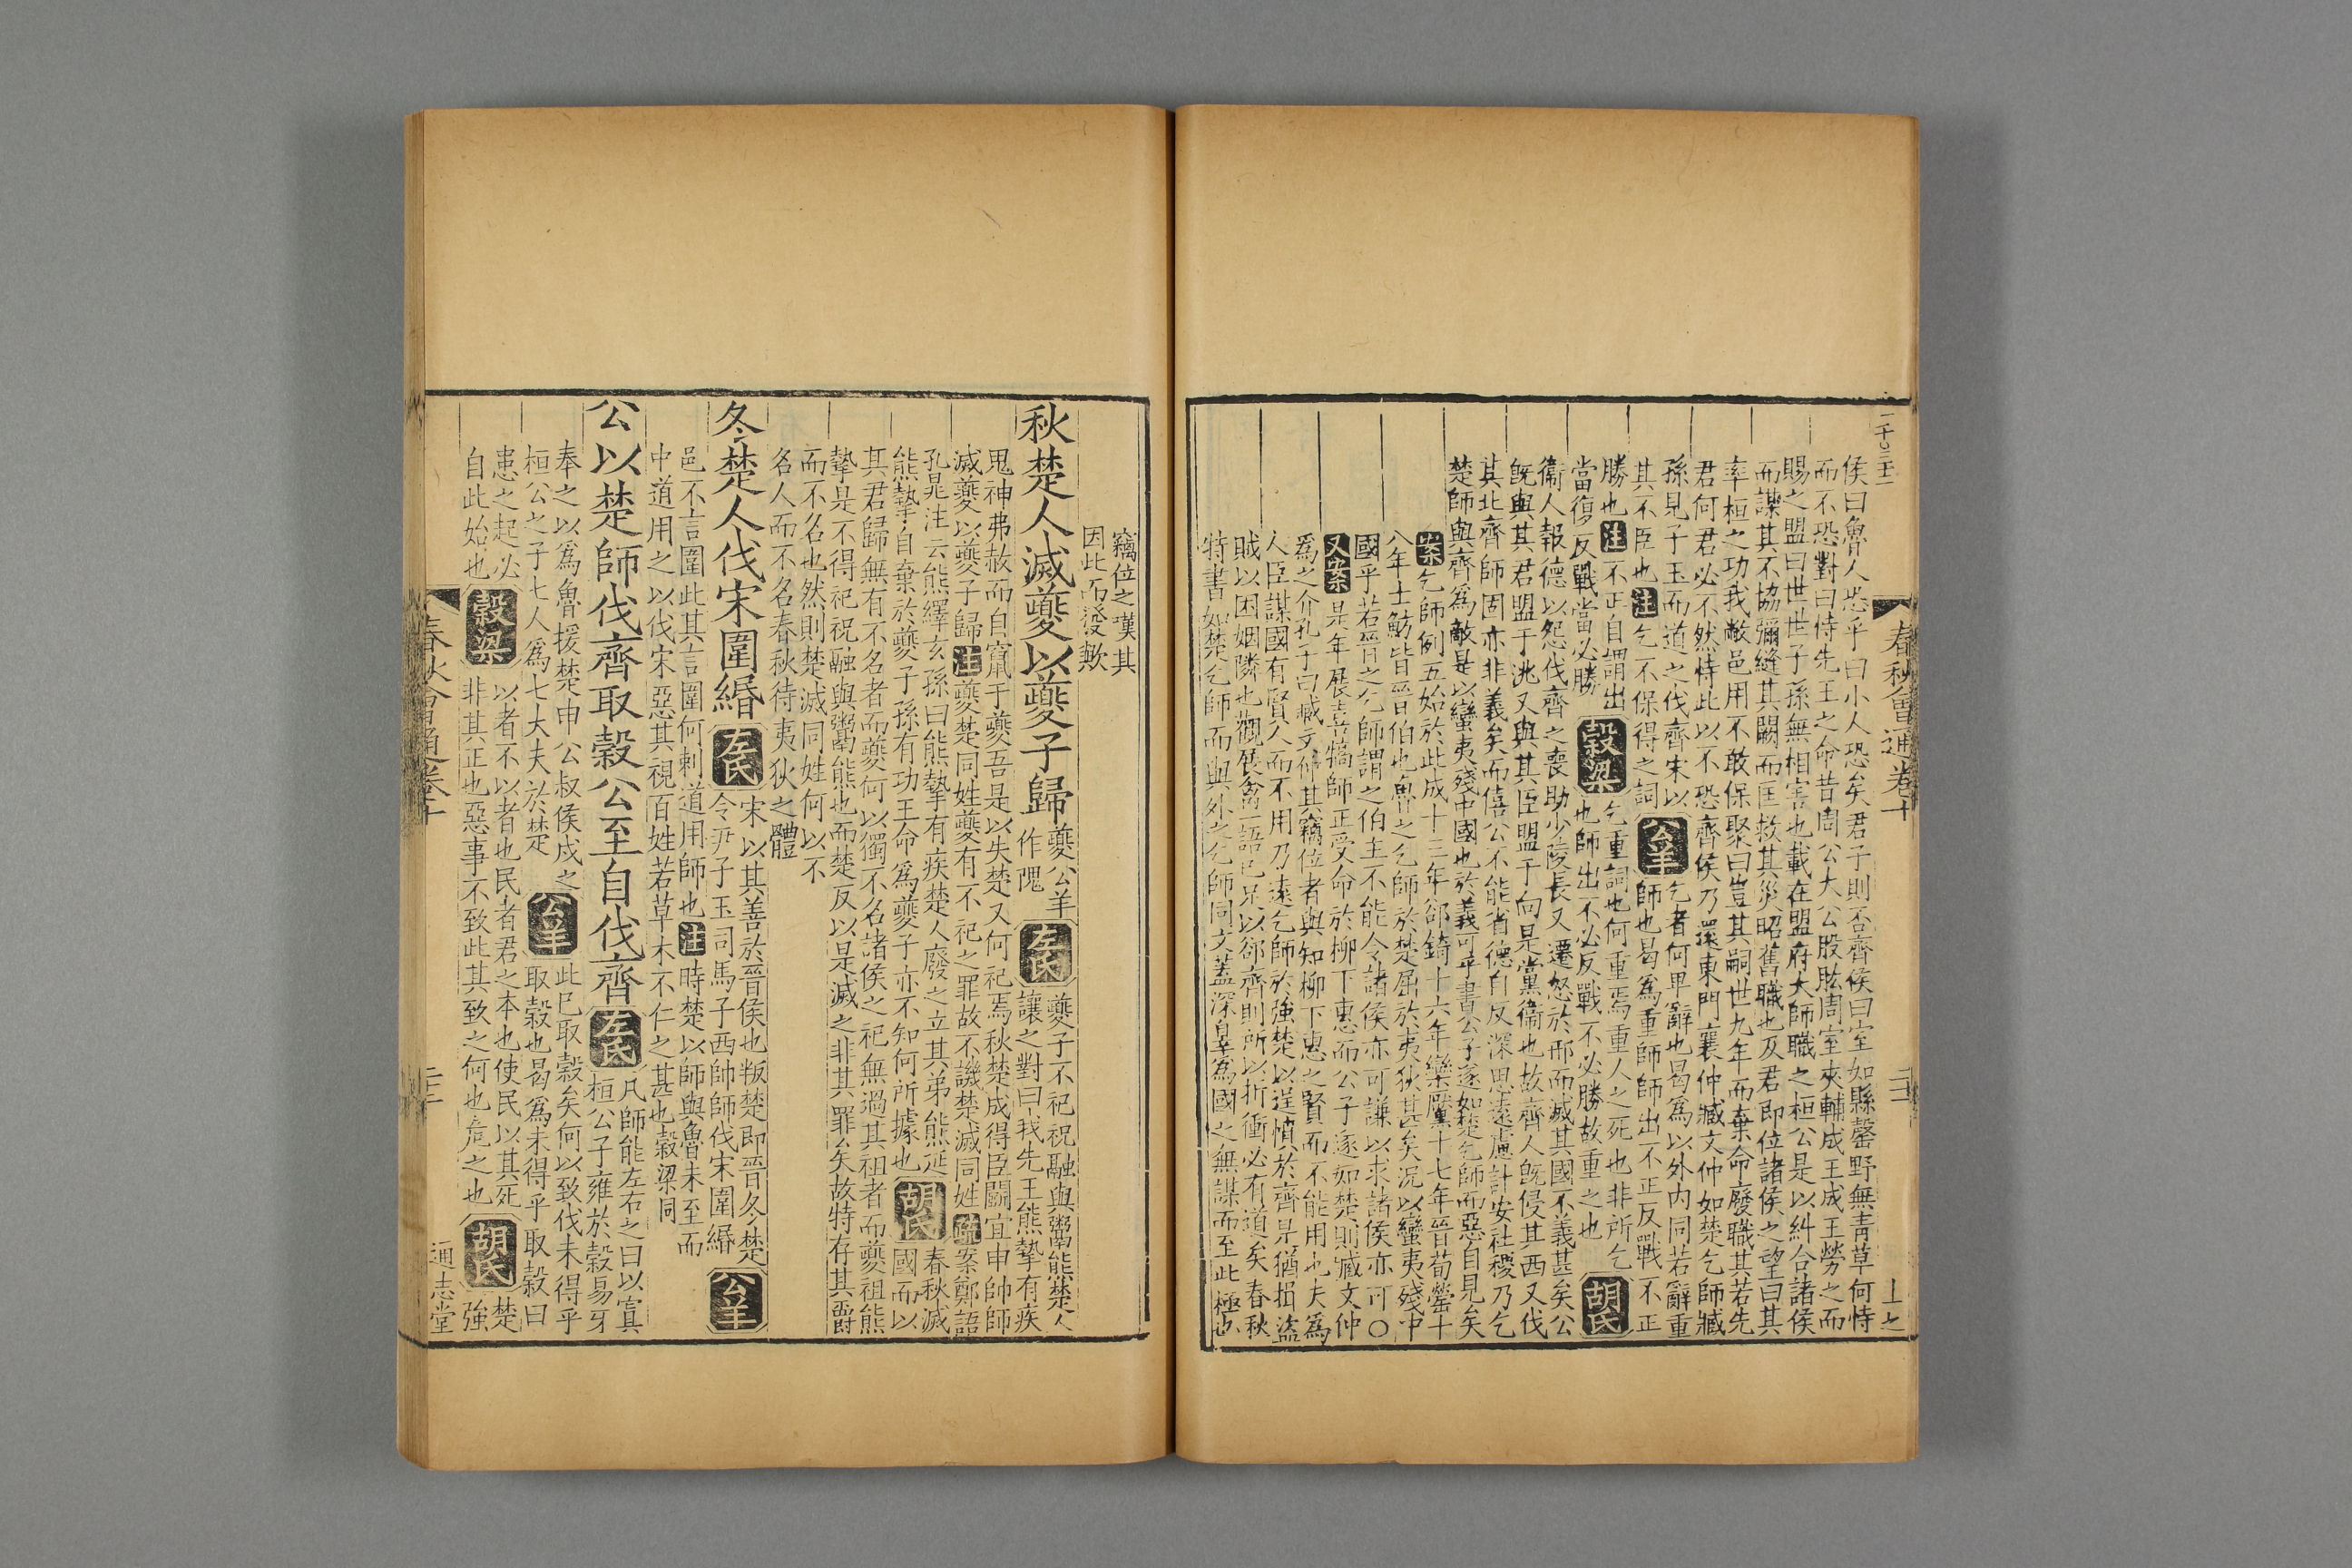 春秋會通卷十
侯曰魯人恐乎曰小人恐矣君子則否齊侯曰室如縣罄野無青草何恃
而不恐對曰恃先王之命昔周公大公股肱周室夾輔成王成王勞之而
賜之盟曰世世子孫無相害也載在盟府大師職之桓公是以糾合諸侯
而謀其不協彌縫其闕而匡救其災昭舊職也及君即位諸侯之望曰其
率桓之功我敝邑用不敢保聚曰豈其嗣世九年而棄命廢職其若先
君何君必不然恃此以不恐齊侯乃還東門襄仲臧文仲如楚乞師臧
孫見子玉而道之伐齊宋以
其不臣也注乞不保得之詞
公羊
乞者何卑辭也曷為以外内同若辭重
師也曷為重師師出不正反戰不正
勝也注不正自謂出
當復反戰當必勝
穀梁
乞重詞也何重焉重人之死也非所乞
也師出不必反戰不必勝故重之也
胡氏
衞人報德以怨伐齊之喪助少陵長又遷怒於邢而滅其國不義甚矣公
旣與其君盟于洮又與其臣盟于向是黨衞也故齊人旣侵其西又伐
其北齊師固亦非義矣而僖公不能省德自反深思遠慮計安社稷乃乞
楚師與齊爲敵是以蠻夷殘中國也於義可乎書公子遂如楚乞師而惡自見矣
案乞師例五始於此成十三年郤錡十六年欒黶十七年晉荀罃十
八年士魴皆晉伯也魯之乞師於楚屈於夷狄甚矣况以蠻夷殘中
國乎若晉之乞師謂之伯主不能令諸侯亦可謙以求諸侯亦可〇
又案是年展喜犒師正受命於柳下惠而公子遂如楚則臧文仲
爲之介孔子曰臧文仲其竊位者與知柳下惠之賢而不能用也夫爲
人臣謀國有賢人而不用乃遠乞師於強楚以逞憤於齊是猶揖盜
賊以困姻隣也觀展禽一語已足以郤齊則所以折衝必有道矣春秋
特書如楚乞師而與外之乞師同文蓋深辠爲國之無謀而至此極也
竊位之嘆其
因此而發歟
秋楚人滅夔以夔子歸
夔公羊
作隗
左氏
夔子不祀祝融與鬻熊楚人
讓之對曰我先王熊摯有疾
鬼神弗赦而自竄于夔吾是以失楚又何祀焉秋楚成得臣鬭宜申帥師
滅夔以夔子歸注夔楚同姓夔有不祀之罪故不譏楚滅同姓疏案鄭語
孔晁注云熊繹玄孫曰熊摯有疾楚人廢之立其弟熊延
熊摯自棄於夔子孫有功王命爲夔子亦不知何所據也
胡氏
春秋滅
國而以
其君歸無有不名者而夔何以獨不名諸侯之祀無過其祖者而夔祖熊
摯是不得祀祝融與鬻熊也而楚反以是滅之非其罪矣故特存其爵
而不名也然則楚滅同姓何以不
名人而不名春秋待夷狄之體
冬楚人伐宋圍緡
左氏
宋以其善於晉侯也叛楚即晉冬楚
令尹子玉司馬子西帥師伐宋圍緡
公羊
邑不言圍此其言圍何刺道用師也注時楚以師與魯未至而
中道用之以伐宋惡其視百姓若草木不仁之甚也穀梁同
公以楚師伐齊取穀公至自伐齊
左氏
凡師能左右之曰以寘
桓公子雍於穀易牙
奉之以爲魯援楚申公叔侯戍之
桓公之子七人爲七大夫於楚
公羊
此已取穀矣何以致伐未得乎
取穀也曷爲未得乎取穀曰
患之起必
自此始也
穀梁
以者不以者也民者君之本也使民以其死
非其正也惡事不致此其致之何也危之也
胡氏
楚
強
春秋會通卷十
通志堂